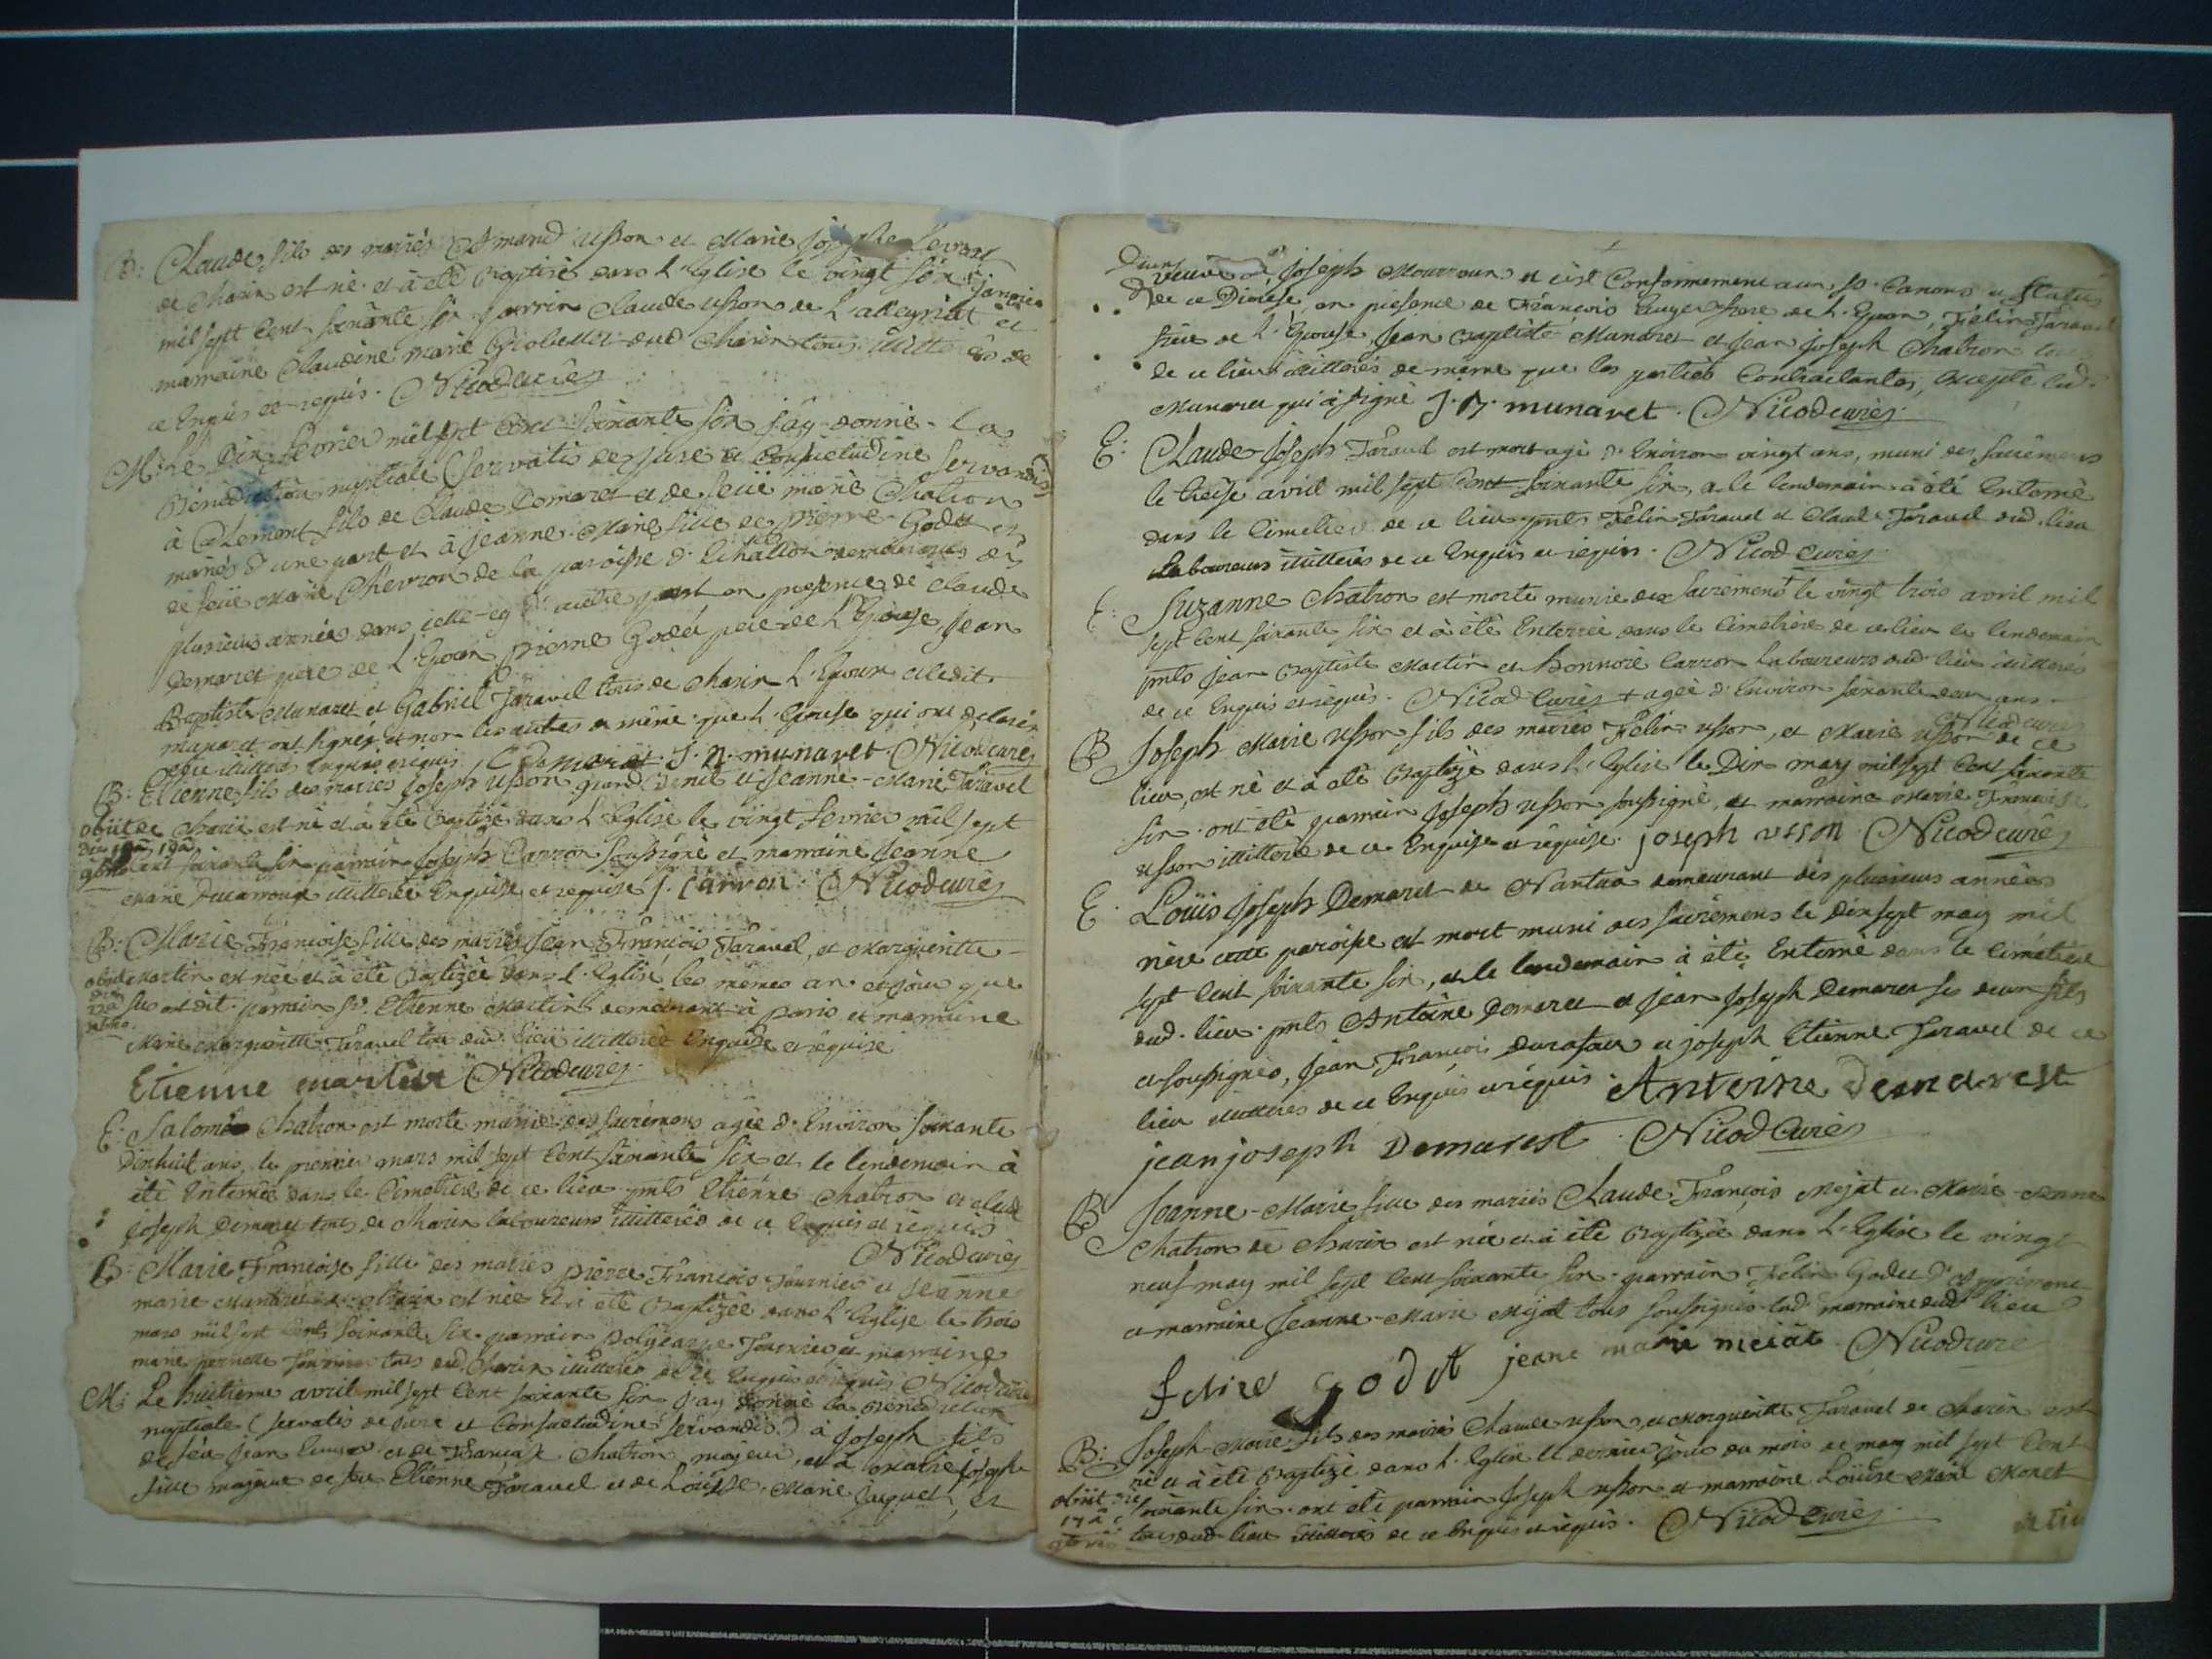 B: Claude fils des mariés Armand Usson et Marie Josephe
de Charix est né et à été Baptisé dans L'Eglise le vingt six janvier
mil sept Cent soixante six parrin Claude Usson de L'alleyriat et
marraine Claudine marie dud Charix tous illitterés de
ce Enquis et requis. Nicod curé
M: Le Dix fevrier mil sept Cent soixante six j'ay donné La
Bénédiction nuptiale (servatis de jure et Consuetudine servandis
à Clement fils de Claude Demaret et de feüe marie Chatron
mariés d'une part et à jeanne-Marie fille de pierre Godet et
de feüe Marie Chevron de la paroisse d'Echallon demeurants dès
plusieurs années dans cette d'autre part en presence de Claude
Demaret pere de L'Epoux pierre Godet pere de L'Epouse, Jean
Baptiste Munaret et Gabriel Taravel tous de Charix L'Epoux et ledit
munaret ont signés et non les autres de même que L'Epouse qui ont declaré
etre illitterés Enquis requis. C Demaret J. B. munavet. Nicod curé
B: Etienne fils des mariés Joseph Usson grand Denil et Jeanne-Marie Taravel
obiit de Charix est né et à été Baptisé dans L'Eglise le vingt fevrier mil sept
Cent soixante six parrain Joseph Carron soussigné et marraine Jeanne
Marie Ducarroux illitterée Enquise et requise J. Carron. Nicod curé
B: Marie Françoise fille des mariés Jean François Taravel, et Margueritte
obiit Martin est née et à été Baptizée dans L'Eglise les mêmes an et jour que
sus ont dit. parrain Sr. Etienne Martin demeurant à paris et marraine
Marie Margueritte Taravel tous dud. lieu illitterée Enquise et requise
Etienne martin Nicod curé
E: Salomée Chatron est morte munie des sacrémens agée d'Environ soixante
Dixhuit ans, le premier mars mil sept Cent soixante six et le lendemain à
été Enterrée dans le Cimetiere de ce lieu pnts Etienne Chatron et claude
Joseph Demaret tous de Charix laboureurs illitterés de ce Enquis et requis
Nicod curé
B: Marie Françoise fille des mariés pierre François Tournier et Jeanne
marie Munaret de Charix est née et à été Baptizée dans L'Eglise le trois
mars mil sept Cents soixante six parrain polycarpe Tournier et marraine
marie pernette Tournier tous dud Charix illitterés de ce Enquis et requis Nicod curé
M: Le huitieme avril mil sept Cent soixante six j'ay donné la Bénédiction
nuptiale (servatis de jure et Consuetudine servandis) à Joseph fils
de feu Jean et de Françoise Chatron majeur, et à Marie Joseph
fille majeure de feu Etienne Taravel et de Loüise Marie Juquet, et
veuve de Joseph Mourroux et c'est Conformement aux Sts Canons et Statuts
de ce Diocése, en presence de François frere de L'Epoux, Félix Taravel
frére de L'Epouse, Jean Baptiste Munaret et Jean Joseph Chatron tous
de ce lieu illitterés de même que les parties Contractantes, excepté led.
Munaret qui à signé J. B. munavet. Nicod curé
E: Claude Joseph Taravel est mort agé d'Environ vingt ans, muni des sacrémens
le treise avril mil sept Cent soixante six, et le lendemain à été Enterré
dans le Cimetiere de ce lieu pnts Felix Taravel et Claude Taravel dud. lieu
Laboureurs illitterés de ce Enquis et requis. Nicod curé
E: Suzanne Chatron est morte munie des sacrémens le vingt trois avril mil
sept Cent soixante six et à été Enterrée dans le Cimetiére de ce lieu le lendemain
pnts Jean Baptiste Martin et Honnoré Carron Laboureurs dud. lieu illitterés
de ce Enquis et requis. Nicod Curé + agée d'Environ soixante deux ans
Nicod curé
B Joseph Marie Usson fils des mariés Félix Usson, et Marie Usson de ce
lieu, est né et à été Baptizé dans L'Eglise le Dix may mil sept Cent soixante
six. ont été parrain Joseph Usson soussigné, et marraine Marie Françoise
Usson illitterée de ce Enquise et requise. joseph usson. Nicod curé
E: Loüis Joseph Demaret de Nantua demeurant dès plusieurs années
riére cette paroisse est mort muni des sacrémens le dixsept may mil
sept Cent soixante six, et le lendemain à été Enterré dans le Cimétiere
dud. lieu. pnts Antoine Demaret et Jean Joseph Demaret ses deux fils
et soussignés, Jean François et joseph Etienne Taravel de ce
lieu illitterés de ce Enquis et requis. Antoine Demarest
jean joseph Demarest. Nicod Curé
B Jeanne-Marie fille des mariés Claude François Mejat et Marie-Anne
Chatron de Charix est née et à été Baptizée dans L'Eglise le vingt
neuf may mil sept Cent soixante six. parrain Felix Godet d'Apremont
et marraine Jeanne-Marie Mejat tous soussignés. lad. marraine dud. lieu
felix godet jeane marie meiat. Nicod curé
B: Joseph-Marie fils des mariés Claude Usson, et Marguerite Taravel de Charix est
né et à été Baptizé dans L'Eglise le dernier jour du mois de may mil sept Cent
obiit soixante six. ont été parrain Joseph Usson et marraine Loüise Marie Monet
tous dud. lieu illitterés de ce Enquis et requis. Nicod Curé